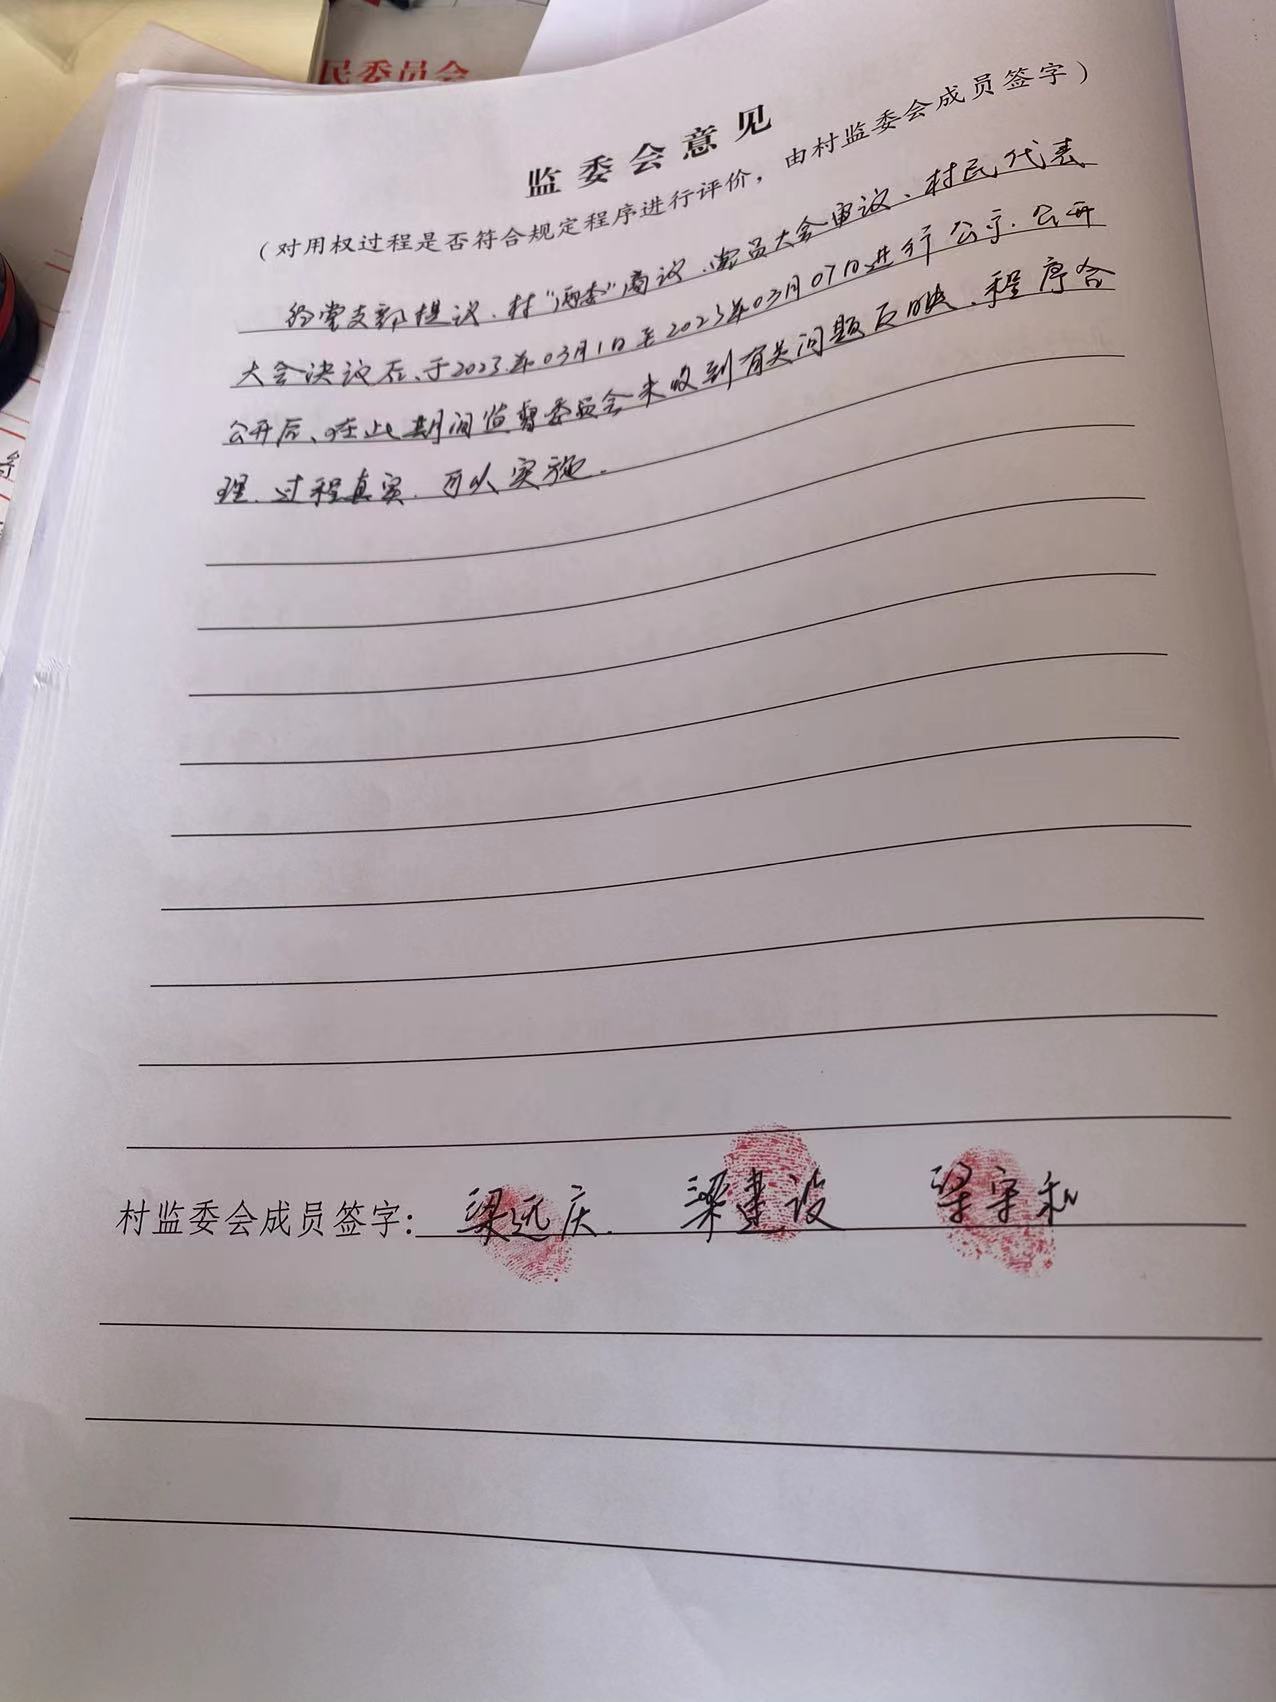 民委员会
监委会意见
（对用权过程是否符合规定程序进行评价，由村监委会成员签字）
经党支部提议、村“两委”商议、党员大会审议、村民代表
大会决议后、于2023年03月1日至2023年03月07日进行公示.公开
公开后、在此期间监督委员会未收到有关问题反映、程序合
理.过程真实.可以实施.
村监委会成员签字：梁远庆. 梁建设 梁守和